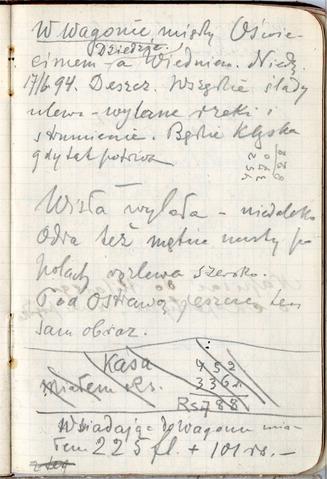 W wagonie między Oświę-
cimem a Wiedniem. Niedz.
Dziedzice
17/6 94. Deszcz. Wszędzie ślady
ulewa - wylane rzeki i
strumienie. Będzie klęska
gdy tak potrwa
Wisła wylała - niedaleko
Odra też mętne nurty po
polach rozlewa szeroko.
Pod Ostrawą jeszcze ten
sam obraz.
Kasa 452
miałem Rs. 336
Rs 788
Wsiadając do wagonu mia-
łem 225 fl. + 101 rs. -